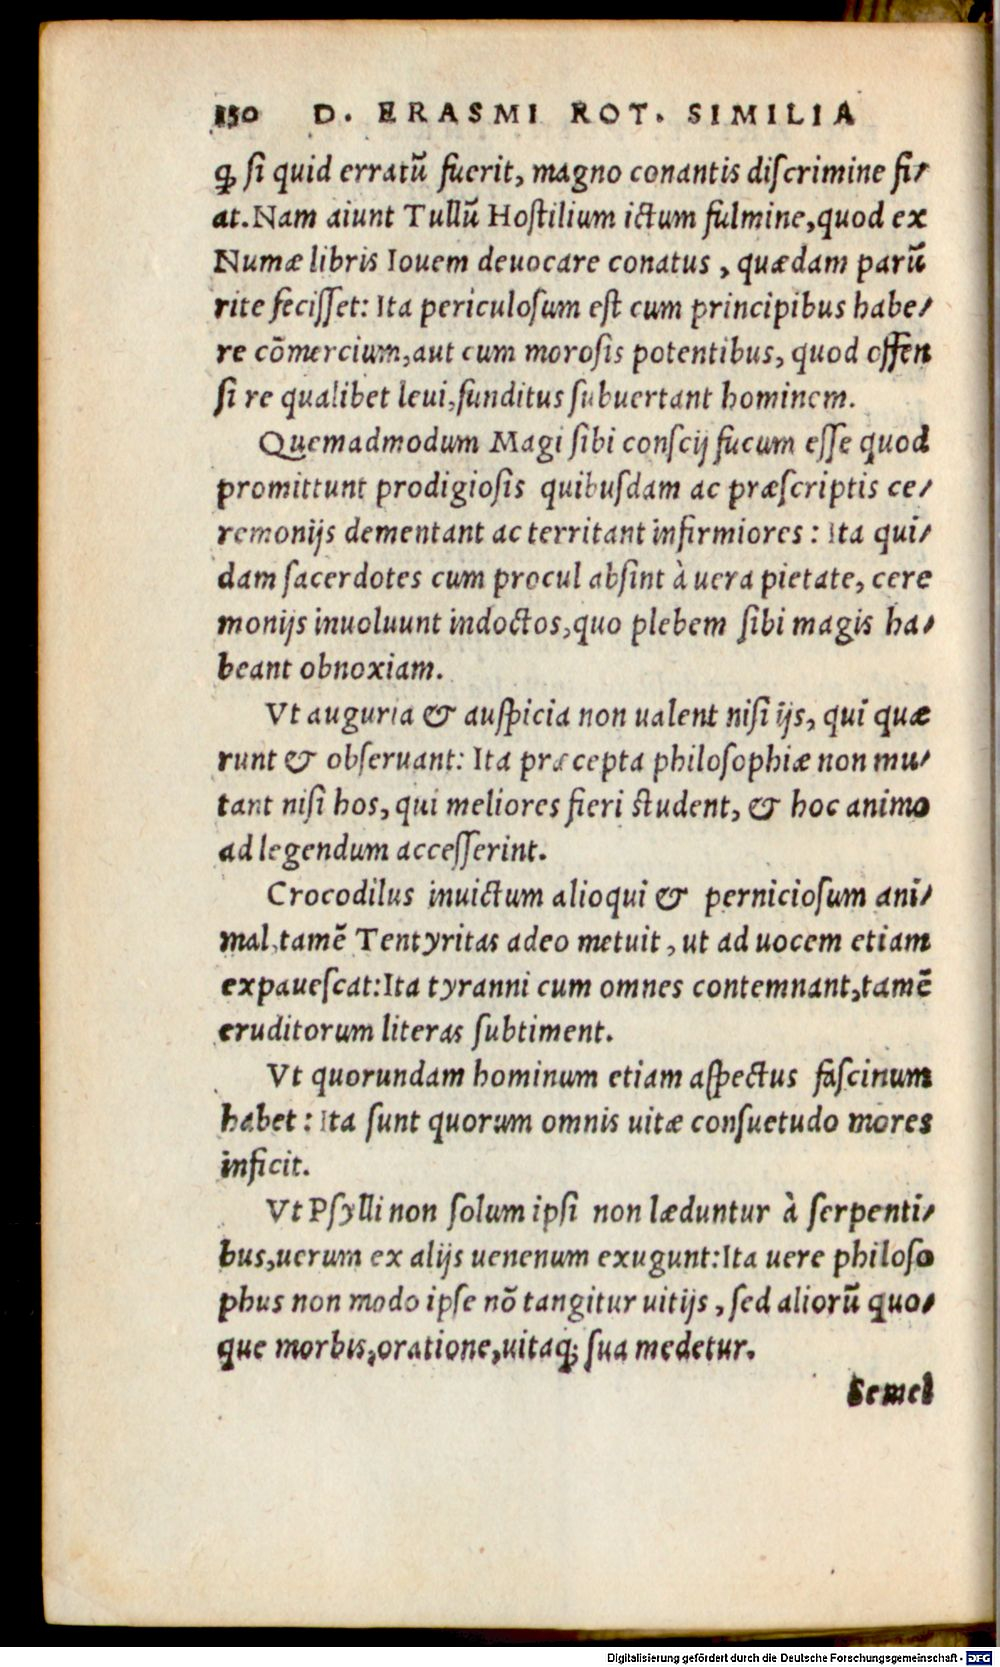 150 D. ERASMI ROT. SIMILIA
ꝙ ſi quid erratũ fuerit, magno conantis diſcrimine fi⸗
at. Nam aiunt Tullũ Hoſtilium ictum fulmine, quod ex
Numæ libris Iouem deuocare conatus, quædam parũ
rite feciſſet: Ita periculoſum eſt cum principibus habe⸗
re cõmercium, aut cum moroſis potentibus, quod offen
ſi re qualibet leui, funditus ſubuertant hominem.
Quemadmodum Magi ſibi conſcij fucum eſſe quod
promittunt prodigioſis quibuſdam ac præſcriptis ce⸗
remonijs dementant ac territant infirmiores: Ita qui⸗
dam ſacerdotes cum procul abſint à uera pietate, cere
monijs inuoluunt indoctos, quo plebem ſibi magis ha⸗
beant obnoxiam.
Vt auguria & auſpicia non ualent niſi ijs, qui quæ
runt & obſeruant: Ita præcepta philoſophiæ non mu⸗
tant niſi hos, qui meliores fieri ſtudent, & hoc animo
ad legendum acceſſerint.
Crocodilus inuictum alioqui & pernicioſum ani⸗
mal, tamẽ Tentyritas adeo metuit, ut ad uocem etiam
expaueſcat: Ita tyranni cum omnes contemnant, tamẽ
eruditorum literas ſubtiment.
Vt quorundam hominum etiam aſpectus faſcinum
habet: Ita ſunt quorum omnis uitæ conſuetudo mores
inficit.
Vt Pſylli non ſolum ipſi non læduntur à ſerpenti⸗
bus, uerum ex alijs uenenum exugunt: Ita uere philoſo
phus non modo ipſe nõ tangitur uitijs, ſed aliorũ quo⸗
que morbis, oratione, uitaq; ſua medetur.
Semel
Digitalisierung gefördert durch die Deutsche Forschungsgemeinschaft - DFG